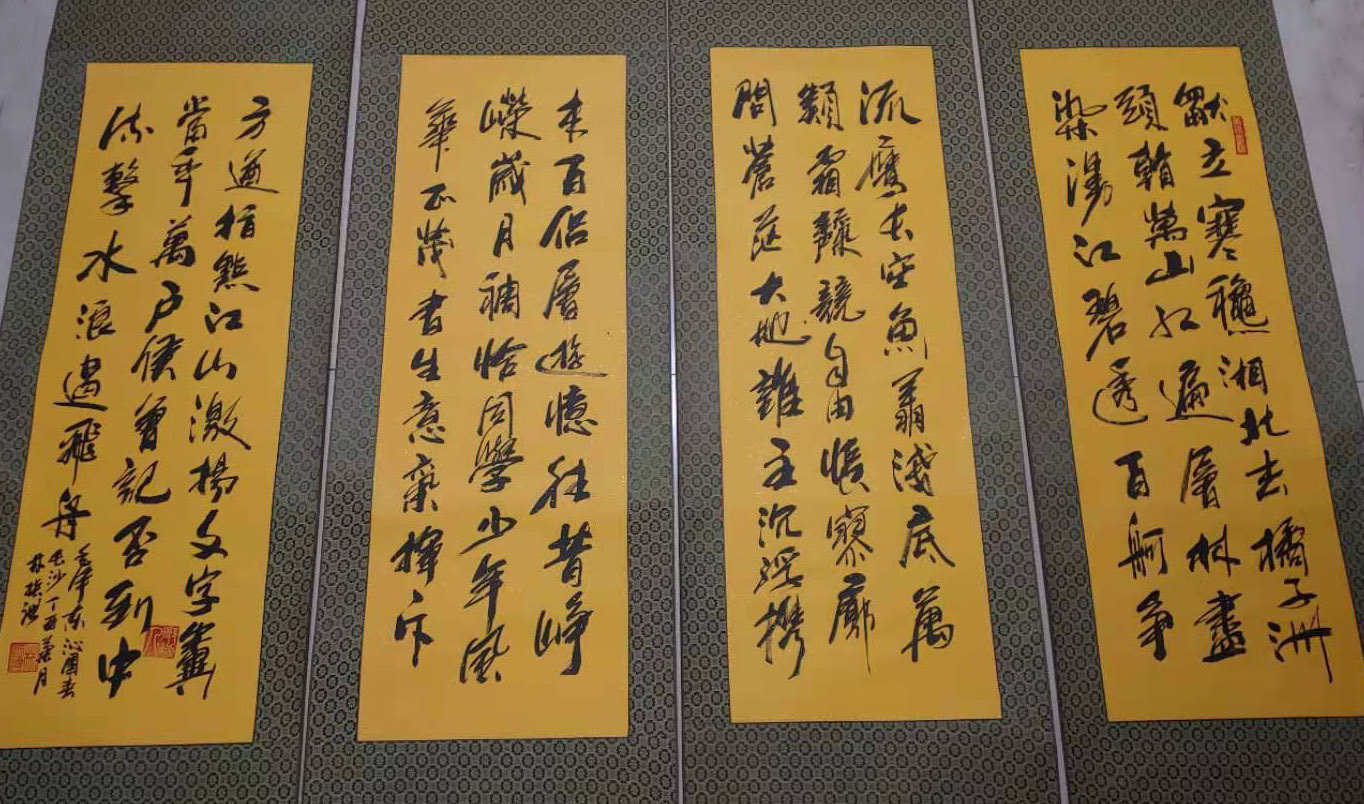 獨立寒穐湘北去橘子洲
頭看萬山红遍層林盡
染漫江碧透百舸争
流鷹长空魚翔淺底萬
類霜競自由悵寥廓
問蒼茫大地誰主沉浮携
来百侣曾遊憶往昔崢
嶸歲月稠恰同學少年風
華正茂書生意氣揮斥
方遒指點江山激揚文字糞
當年萬户侯曾記否到中
流擊水浪遏飛舟
毛泽东沁園春
长沙丁酉月